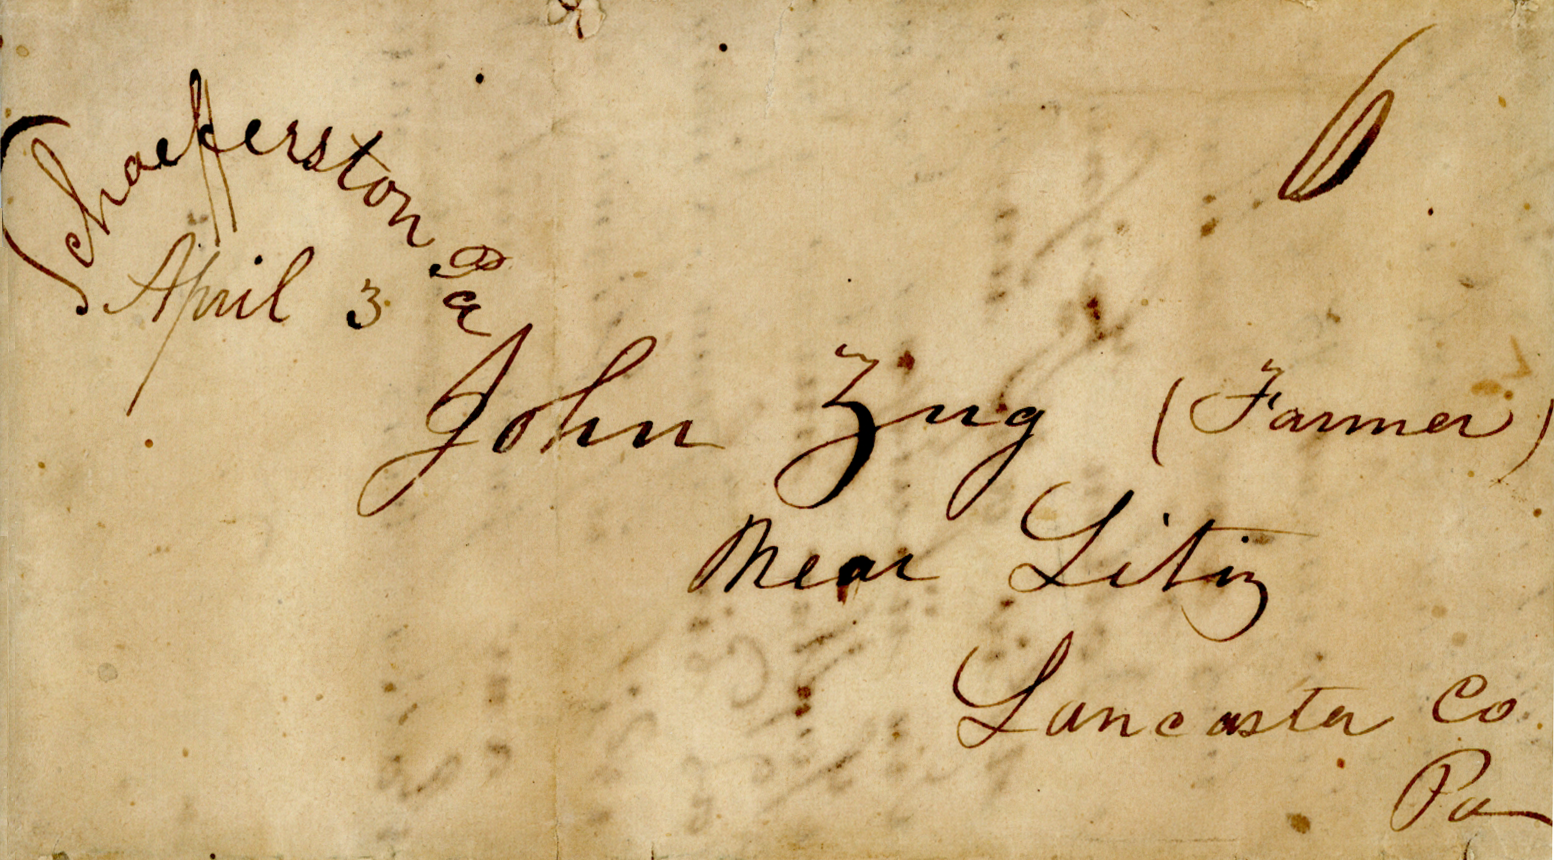 Schaefferston Pa
6
April 3
John Zug (Farmer)
Near Litiz
Lancaster Co
Pa